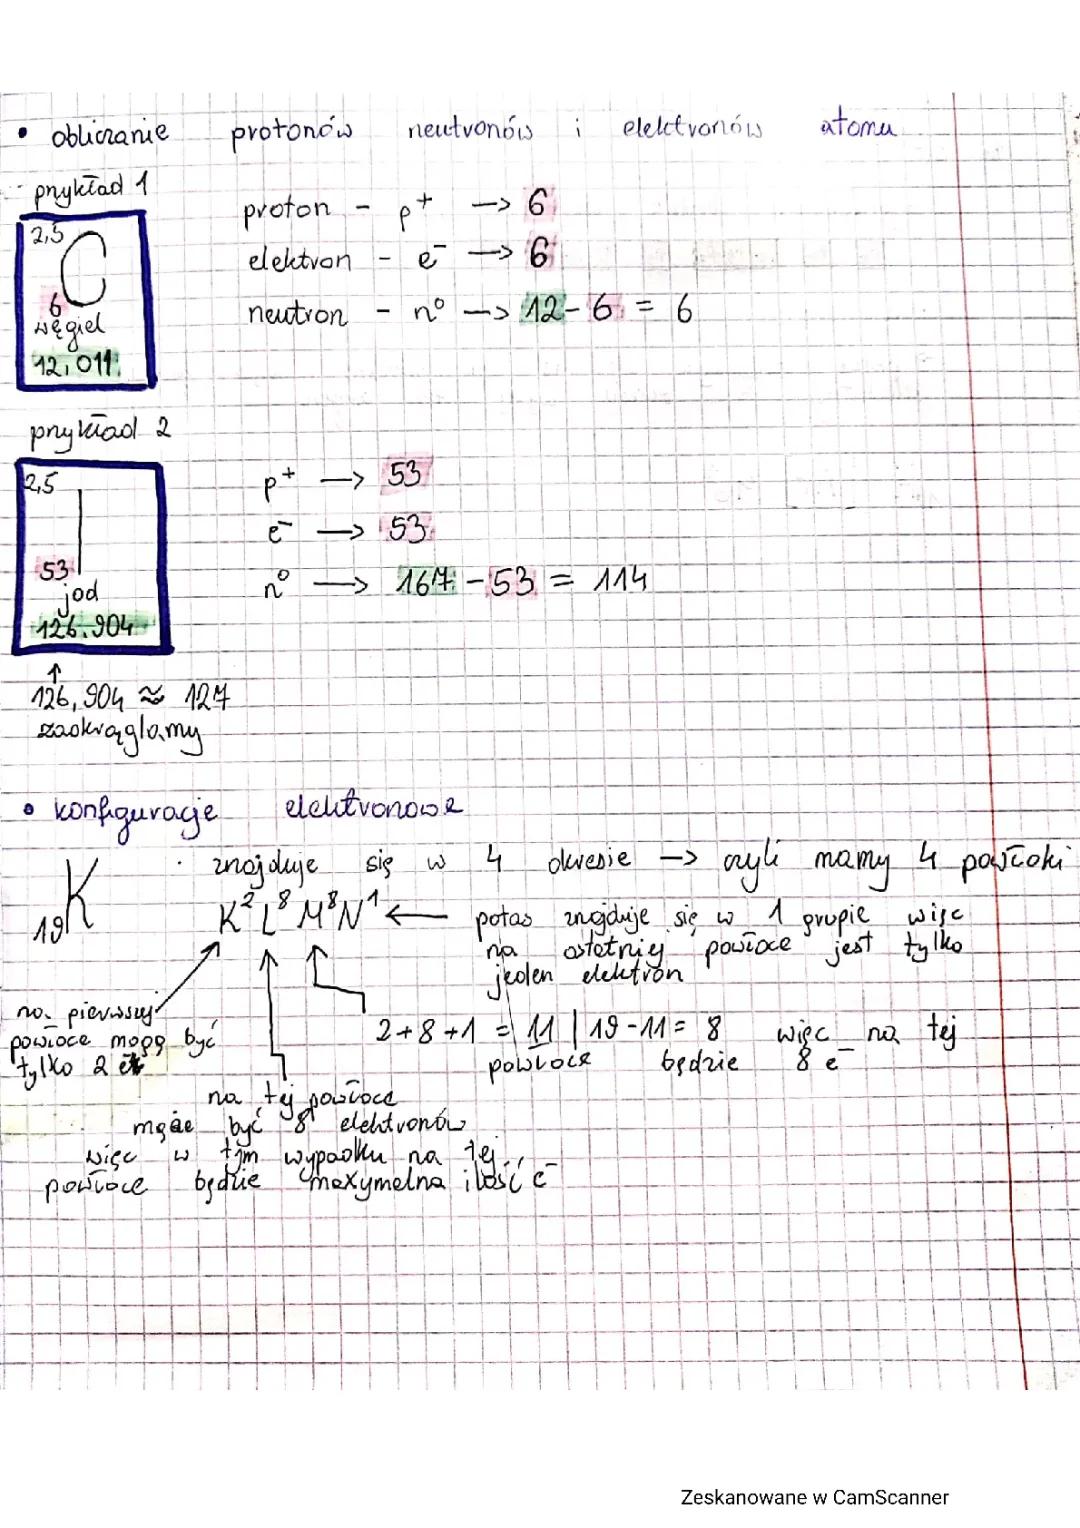 • obliczanie protonów neutronów i elektronów atomu
przykład 1
2,5
C
6
węgiel
12,011
proton - p⁺ → 6
elektron - e⁻ → 6
neutron - n⁰ → 12 - 6 = 6
przykład 2
2,5
I
53
jod
126.904
p⁺ → 53
e⁻ → 53
n⁰ → 167 - 53 = 114
↑
126,904 ≈ 127
zaokrąglamy
• konfiguracje elektronowe
₁₉K
znajduje się w 4 okresie → czyli mamy 4 powłoki
K² L⁸ M⁸ N¹ ← potas znajduje się w 1 grupie więc
na ostatniej powłoce jest tylko
jeden elektron
na pierwszej
powłoce mogą być
tylko 2 e⁻
2+8+1 = 11 | 19-11 = 8 więc na tej
powłoce będzie 8 e⁻
na tej powłoce
może być 8 elektronów
więc w tym wypadku na tej
powłoce będzie maxymalna ilość e⁻
Zeskanowane w CamScanner